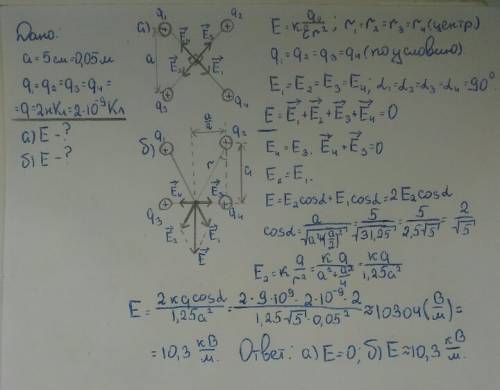 Дано:
a = 5 см = 0,05 м
q₁ = q₂ = q₃ = q₄ =
= q = 2 нКл = 2·10⁻⁹ Кл
а) E - ?
б) E - ?
а) q₁ q₂
a
E₂ E₃
E₄ E₁
q₃ q₄
a/2
б) q₁ q₂
r a
E₄ E₃
q₃ q₄
E₂ E₁
E
E = k q₀/εr² ; r₁ = r₂ = r₃ = r₄ (центр)
q₁ = q₂ = q₃ = q₄ (по условию)
E₁ = E₂ = E₃ = E₄; α₁ = α₂ = α₃ = α₄ = 90°
E = E₁ + E₂ + E₃ + E₄ = 0
E₄ = E₃. E₄ + E₃ = 0
E₂ = E₁.
E = E₂cosα + E₁cosα = 2E₂cosα
cosα = a/√(a²+(a/2)²) = 5/√31,25 = 5/2,5√5 = 2/√5
E₂ = k q/r² = kq/(a²+a²/4) = kq/1,25a²
E = 2kqcosα/1,25a² = 2·9·10⁹·2·10⁻⁹·2/1,25·√5·0,05² ≈ 10304 (В/м) =
= 10,3 кВ/м. Ответ: а) E = 0; б) E ≈ 10,3 кВ/м.